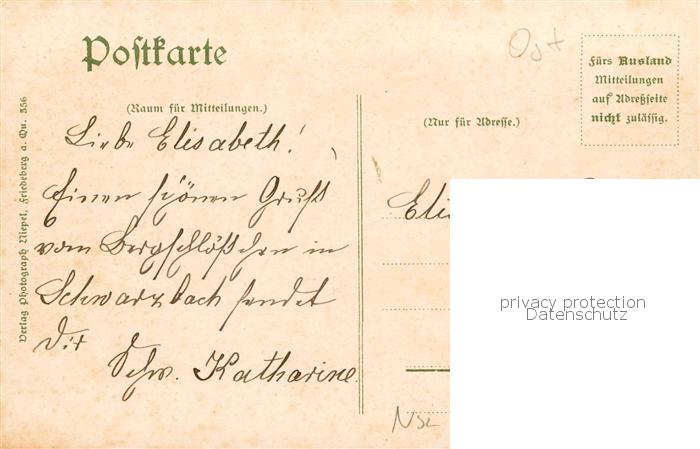 Postkarte
(Raum für Mitteilungen.)
Liebe Elisabeth!
Einen schönen Gruß
vom Bergschlößchen in
Schwarzbach sendet
Dir
Schw. Katharine.
Verlag Photograph Niepel, Friedeberg a. Qu. 556
Ost
Fürs Ausland
Mitteilungen
auf Adreßseite
nicht zulässig.
(Nur für Adresse.)
Eli
privacy protection
Datenschutz